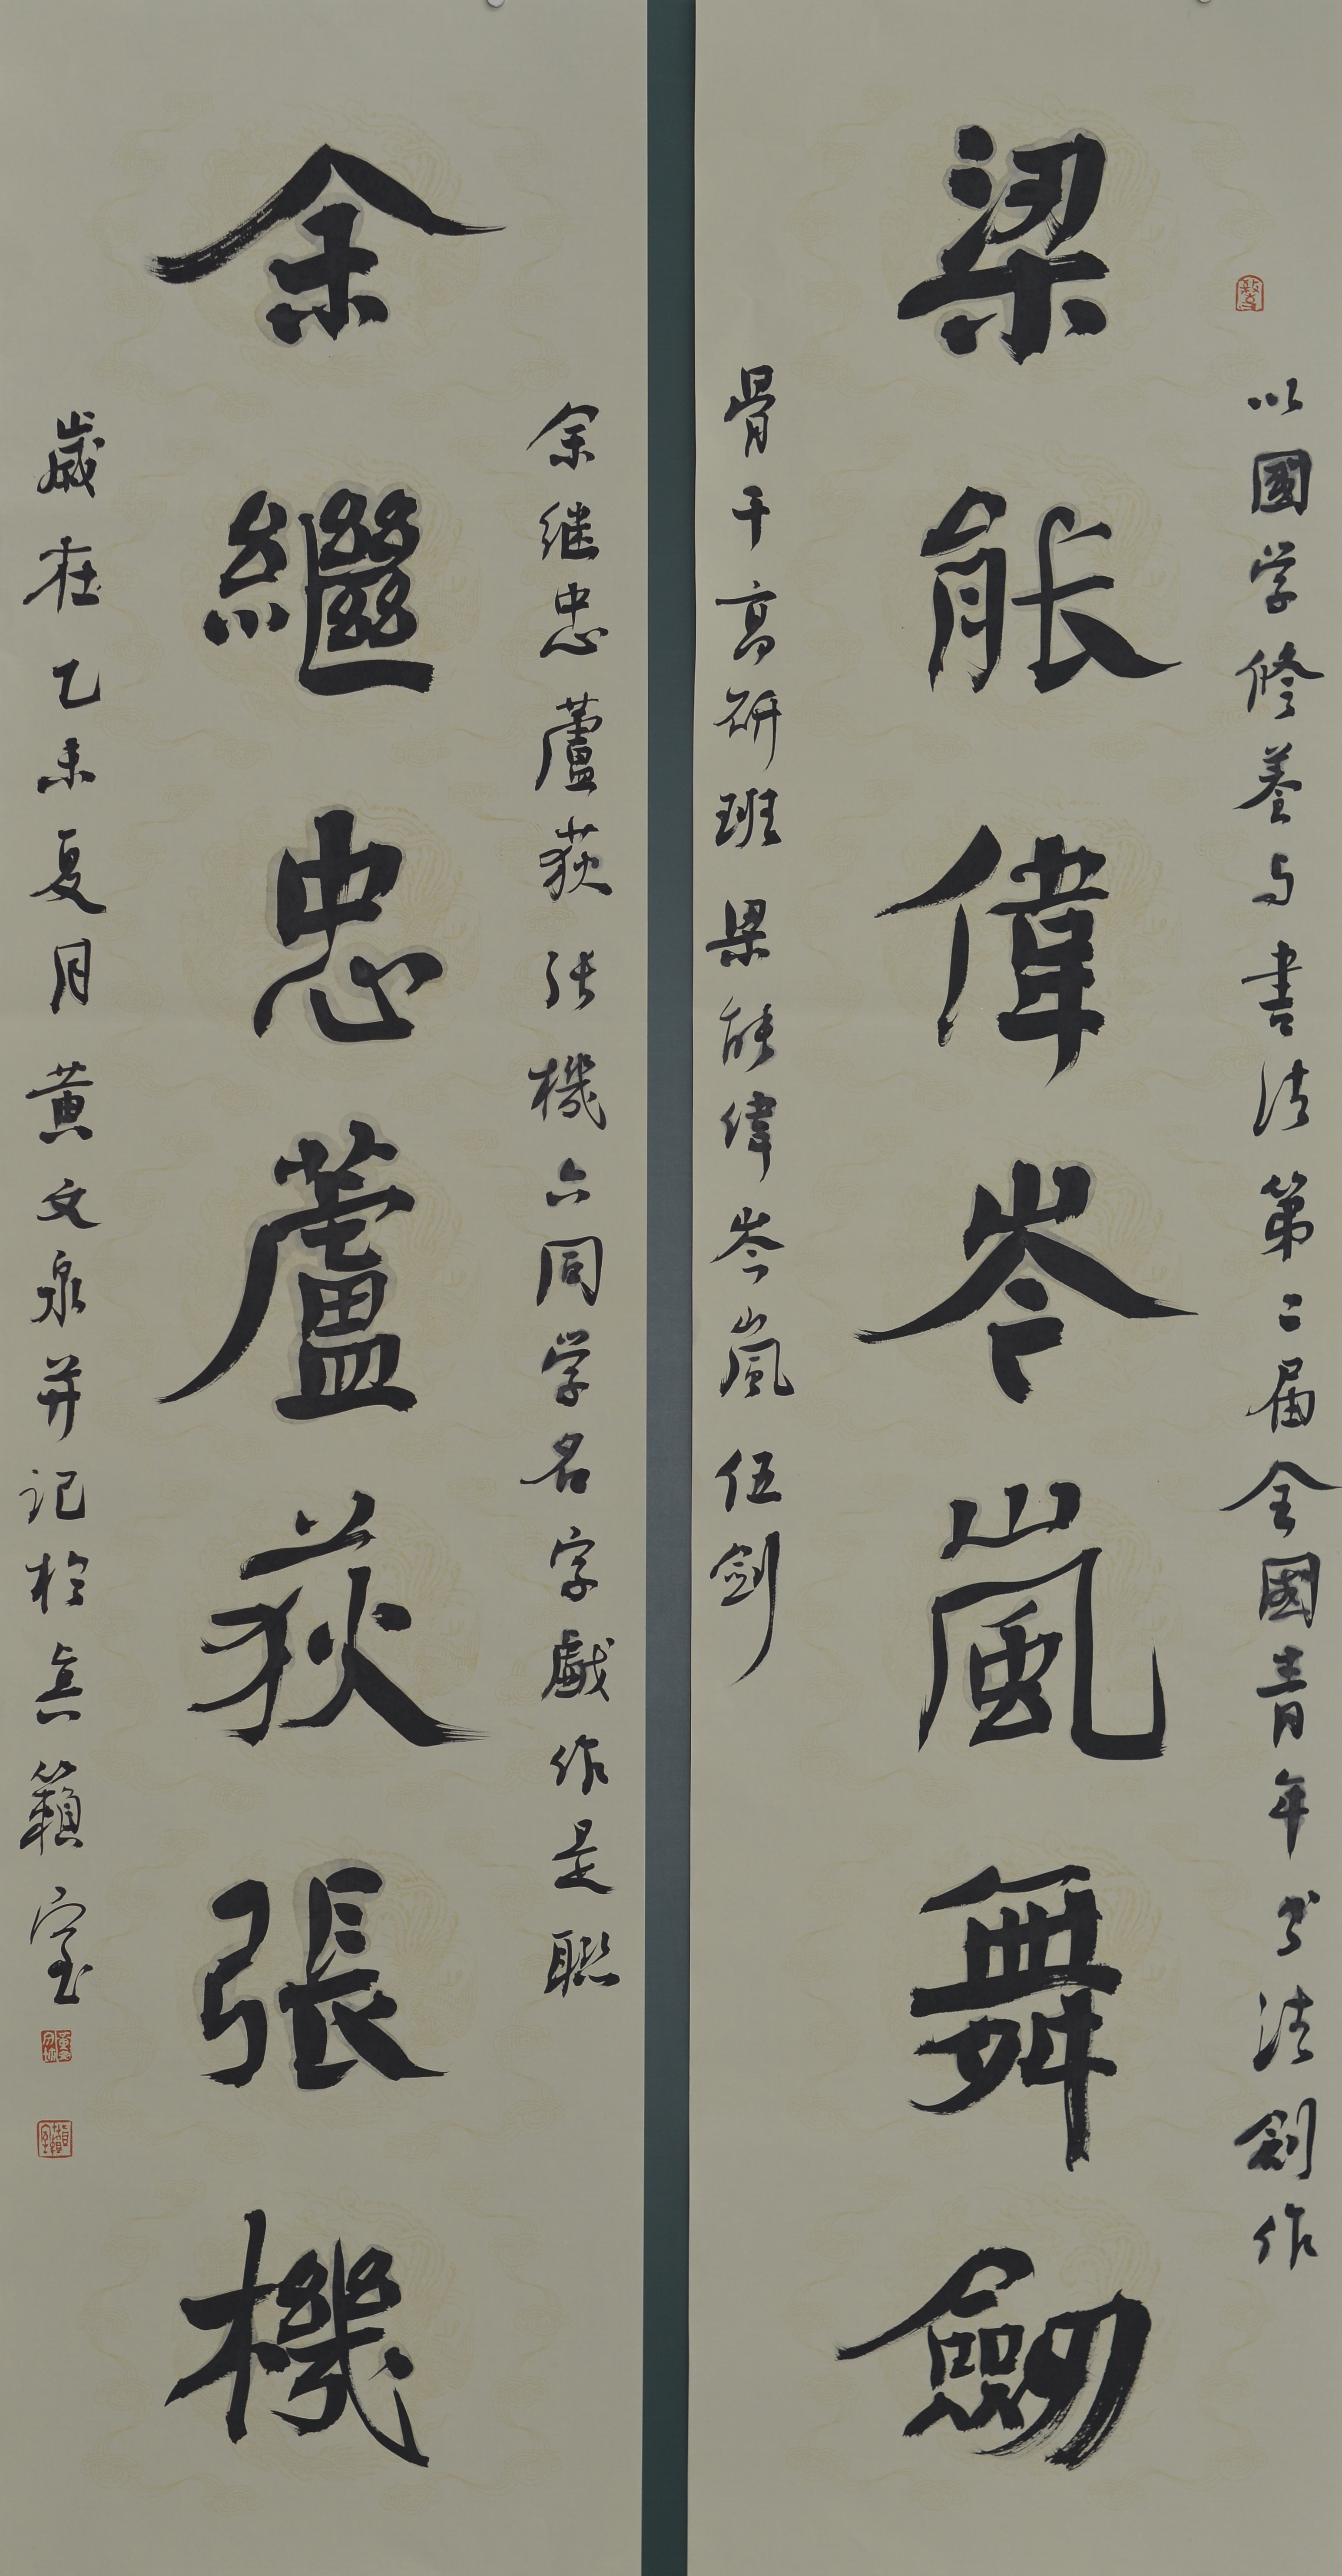 以國学修養与書法第二届全國青年书法創作
梁能偉岑嵐舞劒
骨干高研班梁能偉岑嵐伍劍
余继忠蘆荻张機六同学名字戲作是联
余繼忠蘆荻張機
歲在乙未夏月黄文泉并记於真籟室